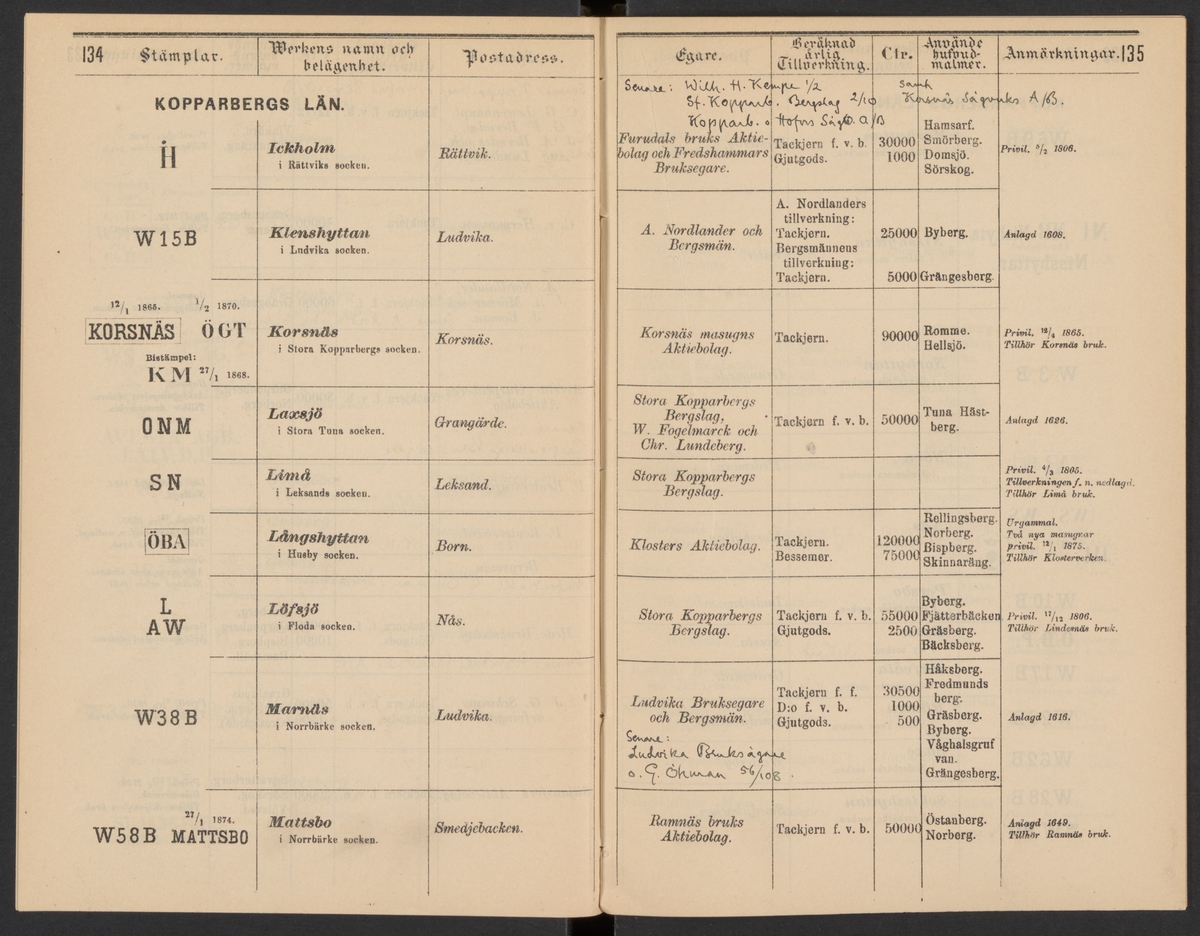 134
Stämplar.
Werkens namn och
belägenhet.
Postadress.
KOPPARBERGS LÄN.
H
Ickholm
i Rättviks socken.
Rättvik.
W15B
Klenshyttan
i Ludvika socken.
Ludvika.
12/1 1865. 1/2 1870.
KORSNÄS ÖGT
Bistämpel:
KM 27/1 1868.
Korsnäs
i Stora Kopparbergs socken.
Korsnäs.
ONM
Laxsjö
i Stora Tuna socken.
Grangärde.
SN
Limå
i Leksands socken.
Leksand.
ÖBA
Långshyttan
i Husby socken.
Born.
L
AW
Löfsjö
i Floda socken.
Nås.
W38B
Marnäs
i Norrbärke socken.
Ludvika.
27/1 1874.
W58B MATTSBO
Mattsbo
i Norrbärke socken.
Smedjebacken.
Egare.
Beräknad
årlig
Tillverkning.
Ctr.
Använde
hufvud-
malmer.
Anmärkningar.
135
Senare: Wilh. H. Kempe 1/2 samt
St. Kopparb. Bergslag 2/10 Korsnäs Sågverks A/B.
Kopparb. o Hofors Sågv. A/B
Furudals bruks Aktie-
bolag och Fredshammars
Bruksegare.
Tackjern f. v. b. 30000
Gjutgods. 1000
Hamsarf.
Smörberg.
Domsjö.
Sörskog.
Privil. 5/2 1806.
A. Nordlander och
Bergsmän.
A. Nordlanders
tillverkning:
Tackjern. 25000 Byberg.
Bergsmännens
tillverkning:
Tackjern. 5000 Grängesberg.
Anlagd 1608.
Korsnäs masugns
Aktiebolag.
Tackjern. 90000
Romme.
Hellsjö.
Privil. 12/4 1865.
Tillhör Korsnäs bruk.
Stora Kopparbergs
Bergslag,
W. Fogelmarck och
Chr. Lundeberg.
Tackjern f. v. b. 50000
Tuna Häst-
berg.
Anlagd 1626.
Stora Kopparbergs
Bergslag.
Privil. 4/3 1805.
Tillverkningen f. n. nedlagd.
Tillhör Limå bruk.
Klosters Aktiebolag.
Tackjern. 120000
Bessemer. 75000
Rellingsberg.
Norberg.
Bispberg.
Skinnaräng.
Urgammal.
Två nya masugnar
privil. 12/1 1875.
Tillhör Klosterverken.
Stora Kopparbergs
Bergslag.
Tackjern f. v. b. 55000
Gjutgods. 2500
Byberg.
Fjätterbäcken
Gräsberg.
Bäcksberg.
Privil. 17/12 1806.
Tillhör Lindesnäs bruk.
Ludvika Bruksegare
och Bergsmän.
Senare:
Ludvika Bruksägare
o. G. Öhman 56/108.
Tackjern f. f. 30500
D:o f. v. b. 1000
Gjutgods. 500
Håksberg.
Fredmunds
berg.
Gräsberg.
Byberg.
Våghalsgruf
van.
Grängesberg.
Anlagd 1616.
Ramnäs bruks
Aktiebolag.
Tackjern f. v. b. 50000
Östanberg.
Norberg.
Anlagd 1649.
Tillhör Ramnäs bruk.